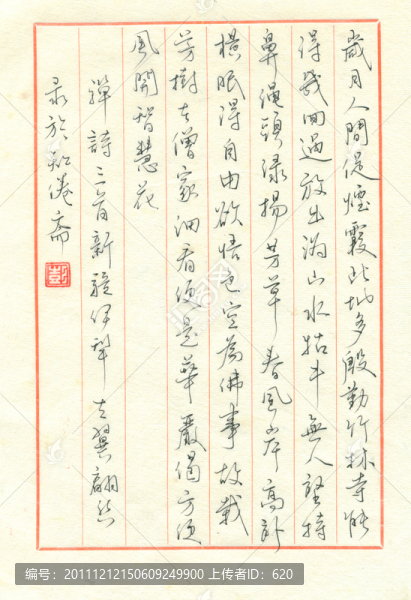 歲月人間促煙霞此地多殷勤竹林寺能
得幾回過放出溈山水牯牛無人堅持
鼻繩頭綠楊芳草春風岸高卧
橫眠得自由欲悟色空為佛事故栽
芳樹在僧家細看便是華嚴偈方便
風開智慧花
禪詩三首新疆伊犁左翼翻
录於斋
编号:20111212150609249900 上传者ID：620